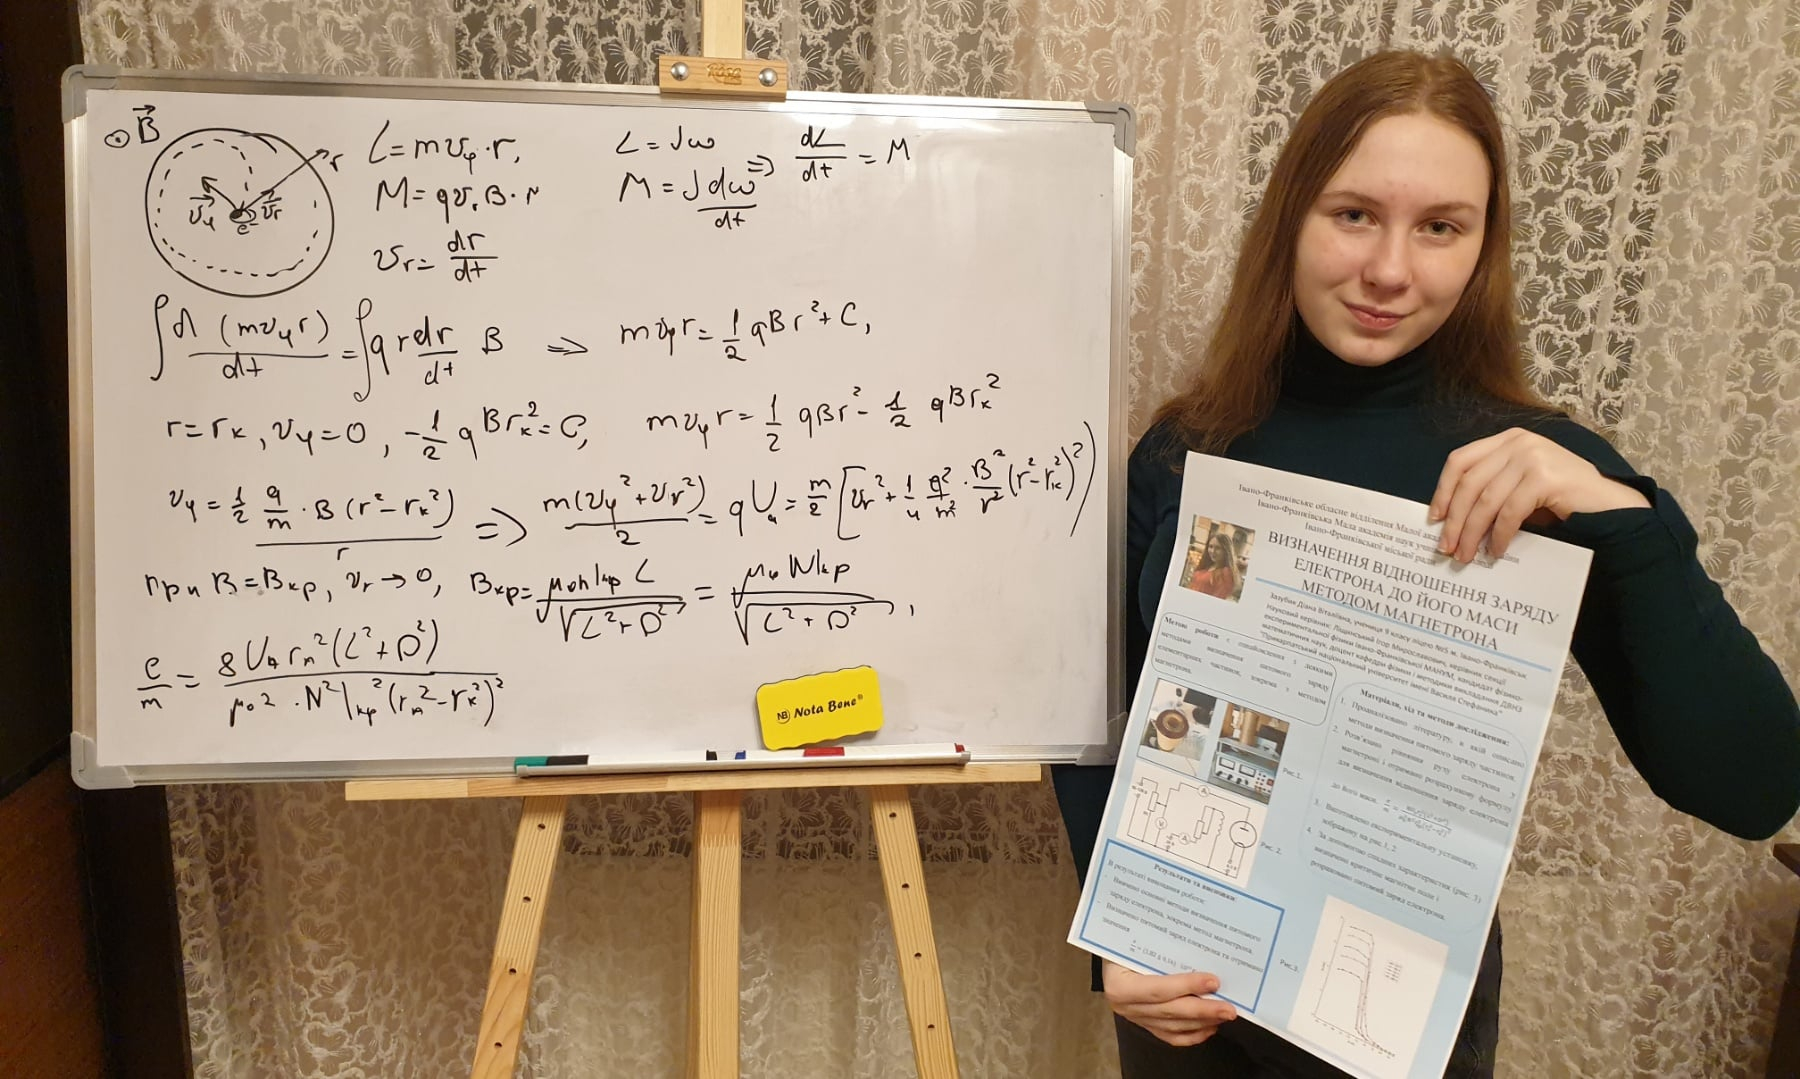 B⃗
r
v⃗ᵩ
v⃗r
e⁻
L = mvᵩ·r,
M = qvᵣB·r
vr = dr/dt
L = Jω
M = J dω/dt
⇒ dL/dt = M
∫ d(mvᵩr)/dt = ∫ q r dr/dt B ⇒ mvᵩr = 1/2 qBr² + C,
r = rк, vᵩ = 0, -1/2 qBrк² = C, mvᵩr = 1/2 qBr² - 1/2 qBrк²
vᵩ = 1/2 q/m · B(r² - rк²)/r ⇒ m(vᵩ² + vr²)/2 = qUа = m/2 [vr² + 1/4 q²/m² · B²/r² (r² - rк²)²)
при B = Bкр, vr → 0, Bкр = μ₀nIкрL/√(L² + D²) = μ₀NIкр/√(L² + D²),
e/m = 8Uа rа²(L² + D²)/μ₀²·N²Iкр²(rа² - rк²)²
Rosa
NB Nota Bene®
Івано-Франківське обласне відділення Малої
Івано-Франківська Мала академія наук
Івано-Франківської міської ради
ВИЗНАЧЕННЯ ВІДНОШЕННЯ ЗАРЯДУ
ЕЛЕКТРОНА ДО ЙОГО МАСИ
МЕТОДОМ МАГНЕТРОНА
Зазубик Діана Віталіївна, учениця 9 класу ліцею №5 м. Івано-Франківськ
Науковий керівник: Ліщинський Ігор Мирославович, керівник секції
експериментальної фізики Івано-Франківської МАНУМ, кандидат фізико-
математичних наук, доцент кафедри фізики і методики викладання ДВНЗ
"Прикарпатський національний університет імені Василя Стефаника"
Метою роботи є ознайомлення з деякими
методами визначення питомого заряду
елементарних частинок, зокрема з методом
магнетрона.
Рис.1.
Рис. 2.
Матеріали, хід та методи дослідження:
1. Проаналізовано літературу, в якій описано
методи визначення питомого заряду частинок.
2. Розв'язано рівняння руху електрона у
магнетроні і отримано розрахункову формулу
для визначення відношення заряду електрона
до його маси.
3. Виготовлено експериментальну установку,
зображену на рис 1, 2.
4. За допомогою спадних характеристик (рис. 3)
визначено критичне магнітне поле і
розраховано питомий заряд електрона.
Результати та висновки:
В результаті виконання роботи:
- Вивчено основні методи визначення питомого
заряду електрона, зокрема метод магнетрона.
- Визначено питомий заряд електрона та отримано
значення
Рис.3.